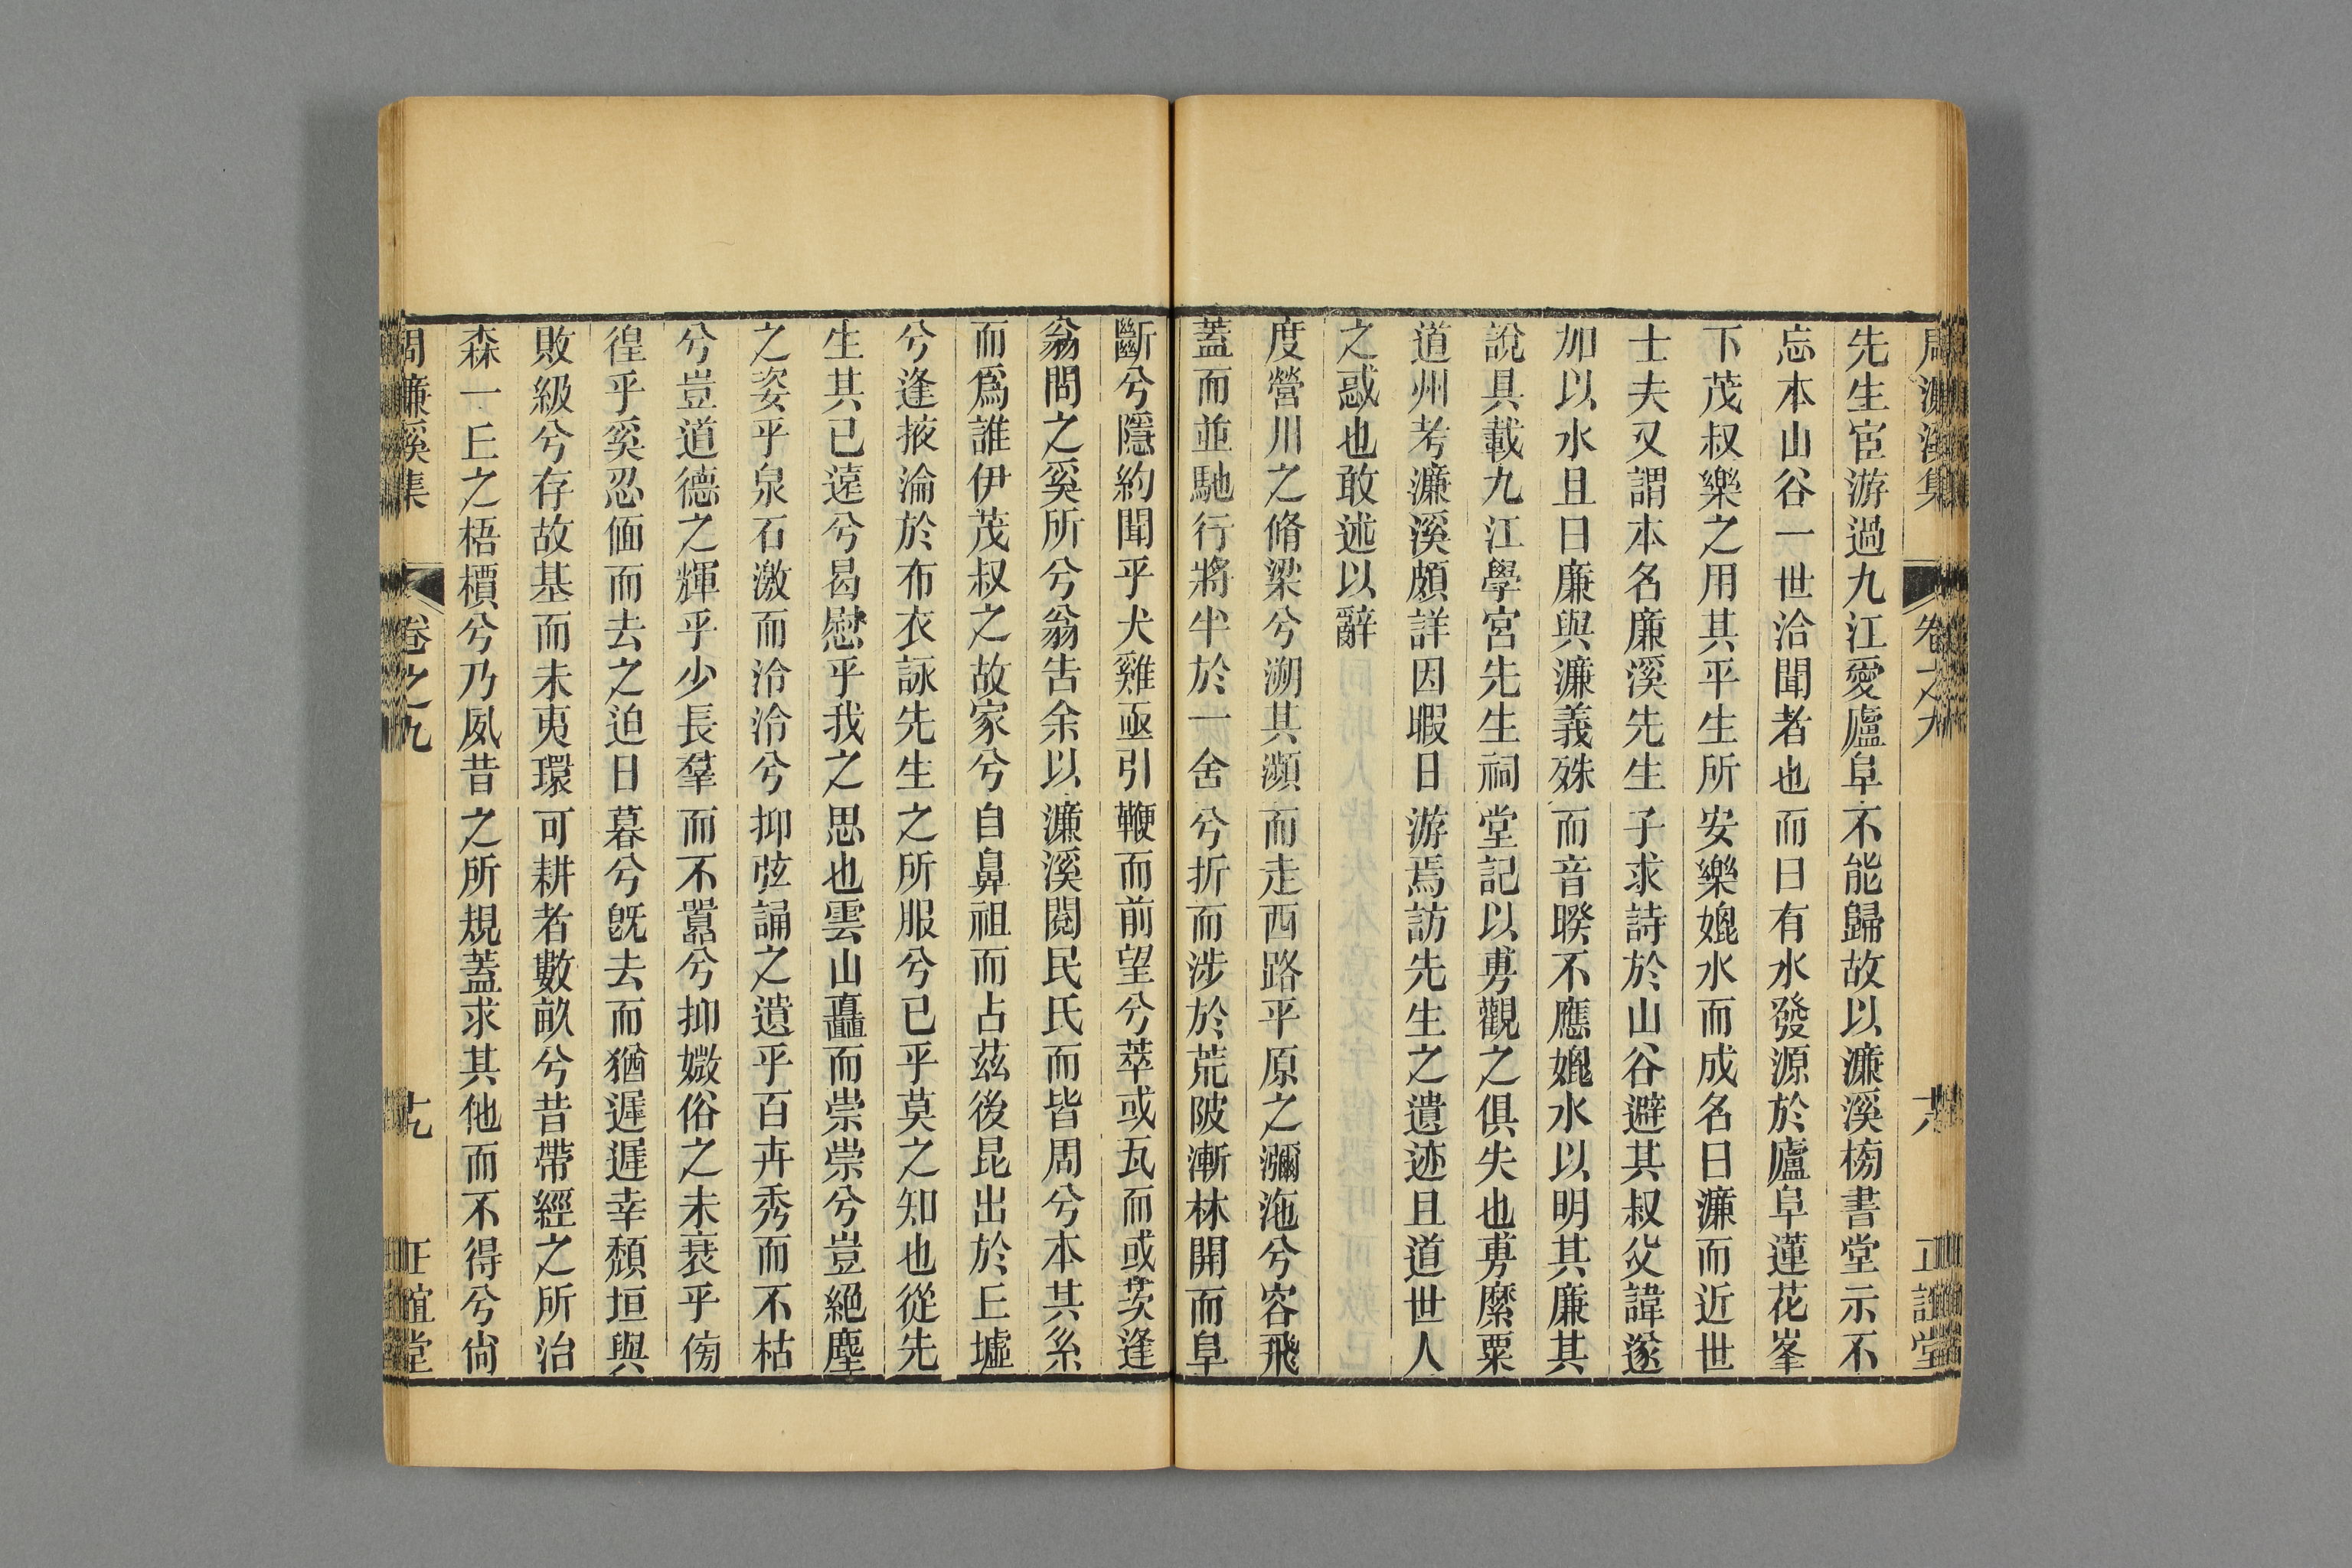 周濂溪集 卷之九 十八 正誼堂
先生宦游過九江愛廬阜不能歸故以濂溪榜書堂示不
忘本山谷一世洽聞者也而曰有水發源於廬阜蓮花峯
下茂叔樂之用其平生所安樂媲水而成名曰濂而近世
士夫又謂本名廉溪先生子求詩於山谷避其叔父諱遂
加以水且曰廉與濂義殊而音暌不應媲水以明其廉其
說具載九江學宮先生祠堂記以旉觀之俱失也旉縻粟
道州考濂溪頗詳因暇日游焉訪先生之遺迹且道世人
之惑也敢述以辭
度營川之脩梁兮溯其瀕而走西路平原之瀰迤兮容飛
蓋而並馳行將半於一舍兮折而涉於荒陂漸林開而阜
斷兮隱約聞乎犬雞亟引鞭而前望兮萃或瓦而或茨逢
翁問之奚所兮翁告余以濂溪閱民氏而皆周兮本其系
而爲誰伊茂叔之故家兮自鼻祖而占茲後昆出於丘墟
兮逢掖淪於布衣詠先生之所服兮已乎莫之知也從先
生其已遠兮曷慰乎我之思也雲山矗而崇崇兮豈絕塵
之姿乎泉石激而泠泠兮抑弦誦之遺乎百卉秀而不枯
兮豈道德之輝乎少長羣而不囂兮抑媺俗之未衰乎傍
徨乎奚忍偭而去之迫日暮兮旣去而猶遲遲幸頹垣與
敗級兮存故基而未夷環可耕者數畝兮昔帶經之所治
森一丘之梧檟兮乃夙昔之所規蓋求其他而不得兮尙
周濂溪集 卷之九 十九 正誼堂